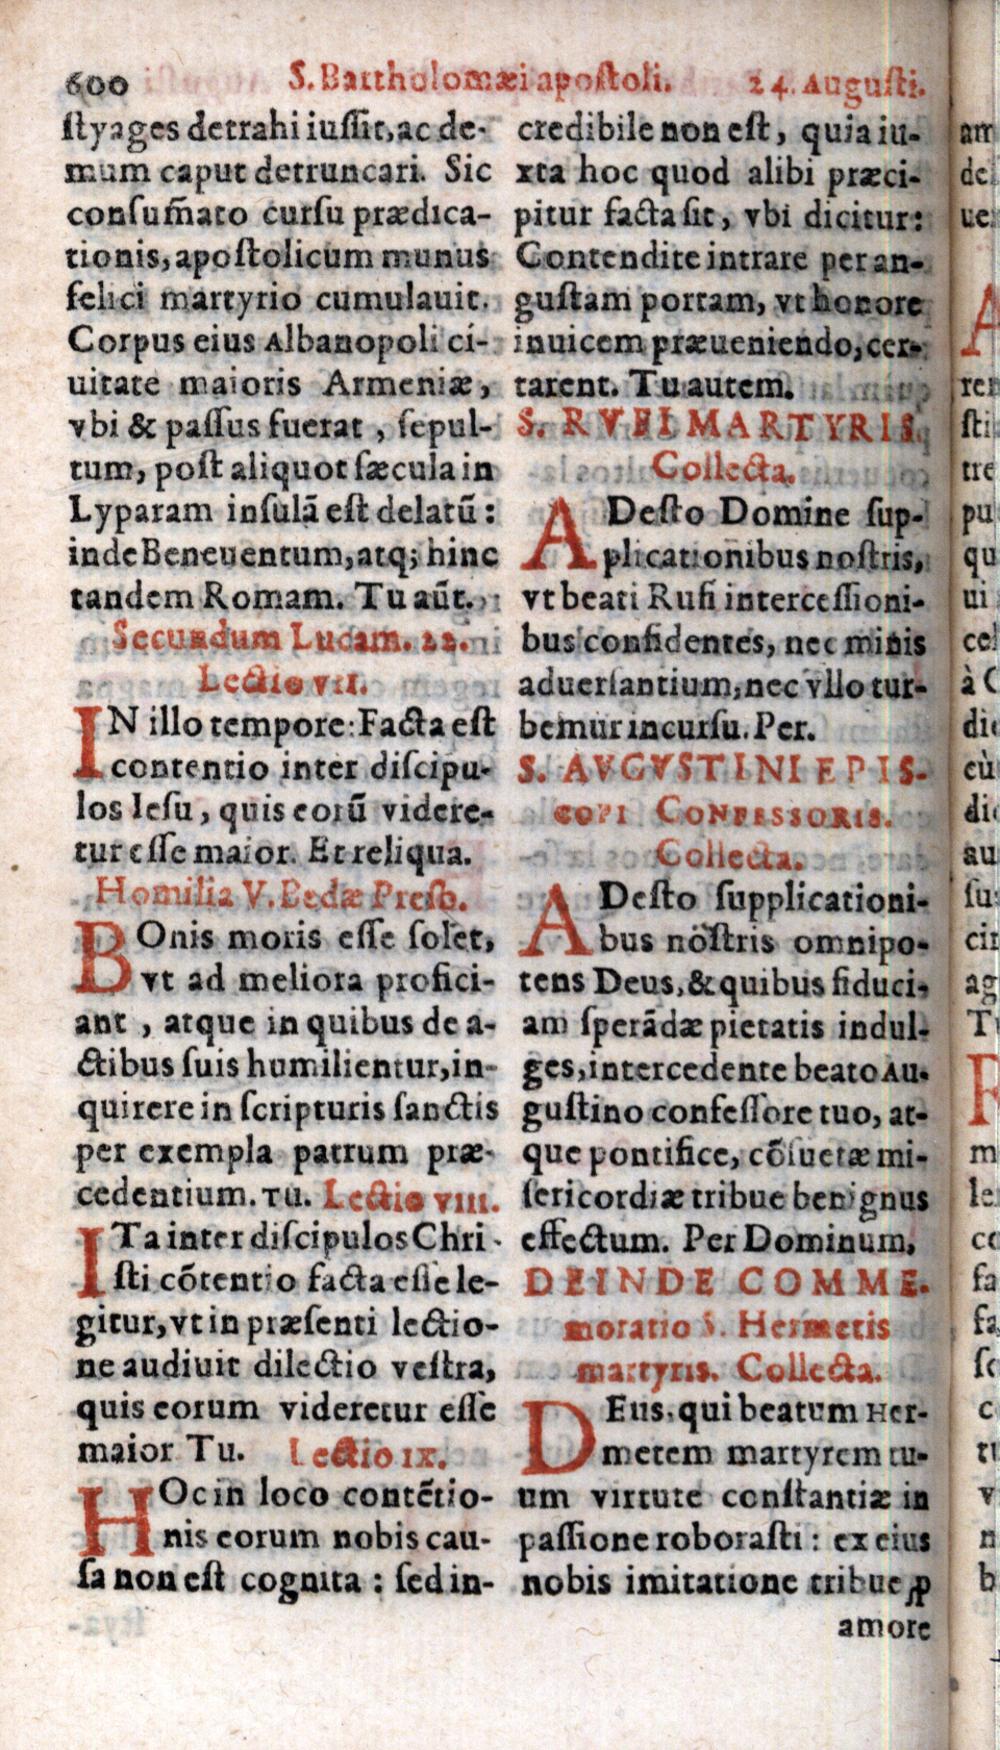 600 S. Bartholomæi apoſtoli. 24. Auguſti.
ſtyages detrahi iuſſit, ac de-
mum caput detruncari. Sic
conſum̃ato curſu prædica-
tionis, apoſtolicum munus
felici martyrio cumulauit.
Corpus eius Albanopoli ci-
uitate maioris Armeniæ,
vbi & paſſus fuerat, ſepul-
tum, poſt aliquot ſæcula in
Lyparam inſulã eſt delatũ:
inde Beneuentum, atq; hinc
tandem Romam. Tu aũt.
Secundum Lucam. 22.
Lectio vii.
IN illo tempore: Facta eſt
contentio inter diſcipu-
los Ieſu, quis eorũ videre-
tur eſſe maior. Et reliqua.
Homilia V. Bedæ Presb.
BOnis moris eſſe ſolet,
vt ad meliora profici-
ant, atque in quibus de a-
ctibus ſuis humilientur, in-
quirere in ſcripturis ſanctis
per exempla patrum præ-
cedentium. Tu. Lectio viii.
ITa inter diſcipulos Chri-
ſti cõtentio facta eſſe le-
gitur, vt in præſenti lectio-
ne audiuit dilectio veſtra,
quis eorum videretur eſſe
maior Tu. Lectio ix.
HOc in loco contẽtio-
nis eorum nobis cau-
ſa non eſt cognita: ſed in-
credibile non eſt, quia iu-
xta hoc quod alibi præci-
pitur facta ſit, vbi dicitur:
Contendite intrare per an-
guſtam portam, vt honore
inuicem præueniendo, cer-
tarent. Tu autem.
S. RVFI MARTYRIS.
Collecta.
ADeſto Domine ſup-
plicationibus noſtris,
vt beati Rufi interceſſioni-
bus confidentes, nec minis
aduerſantium, nec vllo tur-
bemur incurſu. Per.
S. AVGVSTINI EPIS-
COPI CONFESSORIS.
Collecta.
ADeſto ſupplicationi-
bus noſtris omnipo-
tens Deus, & quibus fiduci-
am ſperãdæ pietatis indul-
ges, intercedente beato Au-
guſtino confeſſore tuo, at-
que pontifice, cõſuetæ mi-
ſericordiæ tribue benignus
effectum. Per Dominum,
DEINDE COMME-
moratio S. Hermetis
martyris. Collecta.
DEus, qui beatum Her-
metem martyrem tu-
um virtute conſtantiæ in
paſſione roboraſti: ex eius
nobis imitatione tribue ꝓ
amore